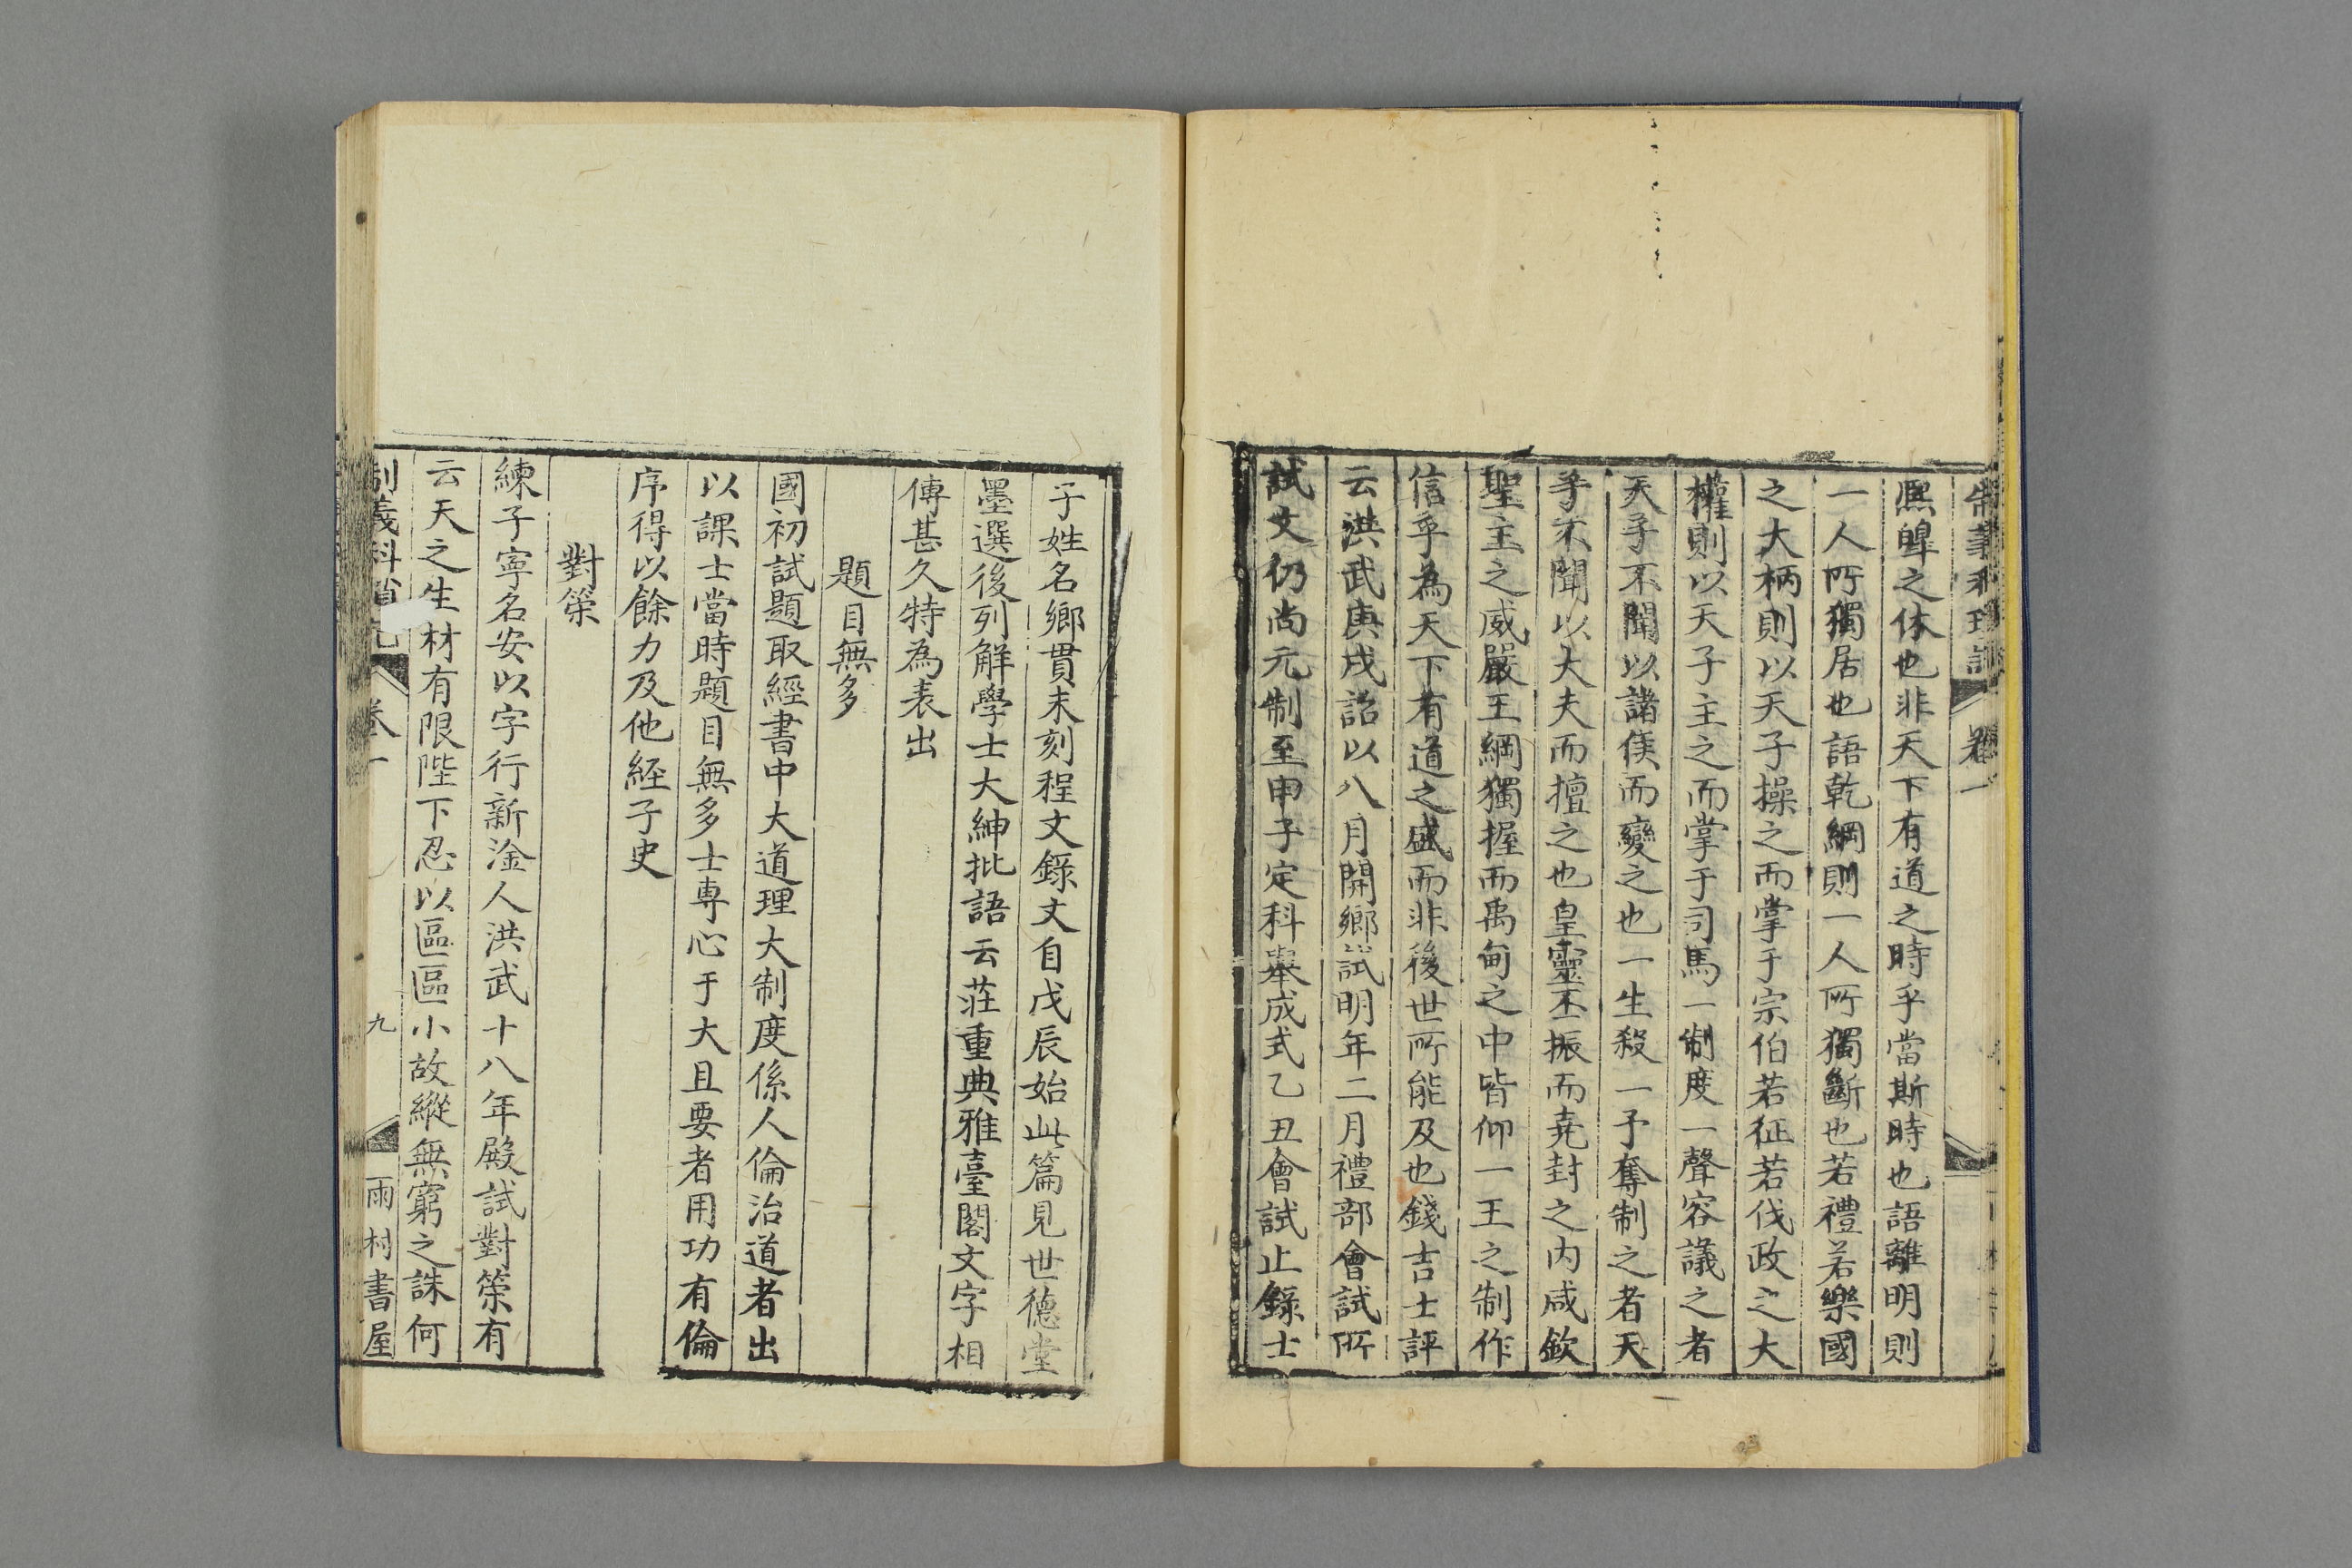 卷一
熈皥之休也非天下有道之時乎當斯時也語離明則
一人所獨居也語乾綱則一人所獨斷也若禮若樂國
之大柄則以天子操之而掌于宗伯若征若伐政之大
權則以天子主之而掌于司馬一制度一聲容議之者
天子不聞以諸侯而變之也一生殺一予奪制之者天
子不聞以大夫而擅之也皇靈丕振而堯封之内咸欽
聖主之威嚴王綱獨握而禹甸之中皆仰一王之制作
信乎為天下有道之盛而非後世所能及也錢吉士評
云洪武庚戌詔以八月開鄉試明年二月禮部會試所
試文仍尚元制至申子定科舉成式乙丑會試止錄士
子姓名鄉貫未刻程文錄文自戊辰始此篇見世德堂
墨選後列解學士大紳批語云莊重典雅臺閣文字相
傳甚久特為表出
題目無多
國初試題取經書中大道理大制度係人倫治道者出
以課士當時題目無多士專心于大且要者用功有倫
序得以餘力及他經子史
對策
練子寧名安以字行新淦人洪武十八年殿試對策有
云天之生材有限陛下忍以區區小故縱無窮之誅何
制義科瑣記 卷一 九 雨村書屋